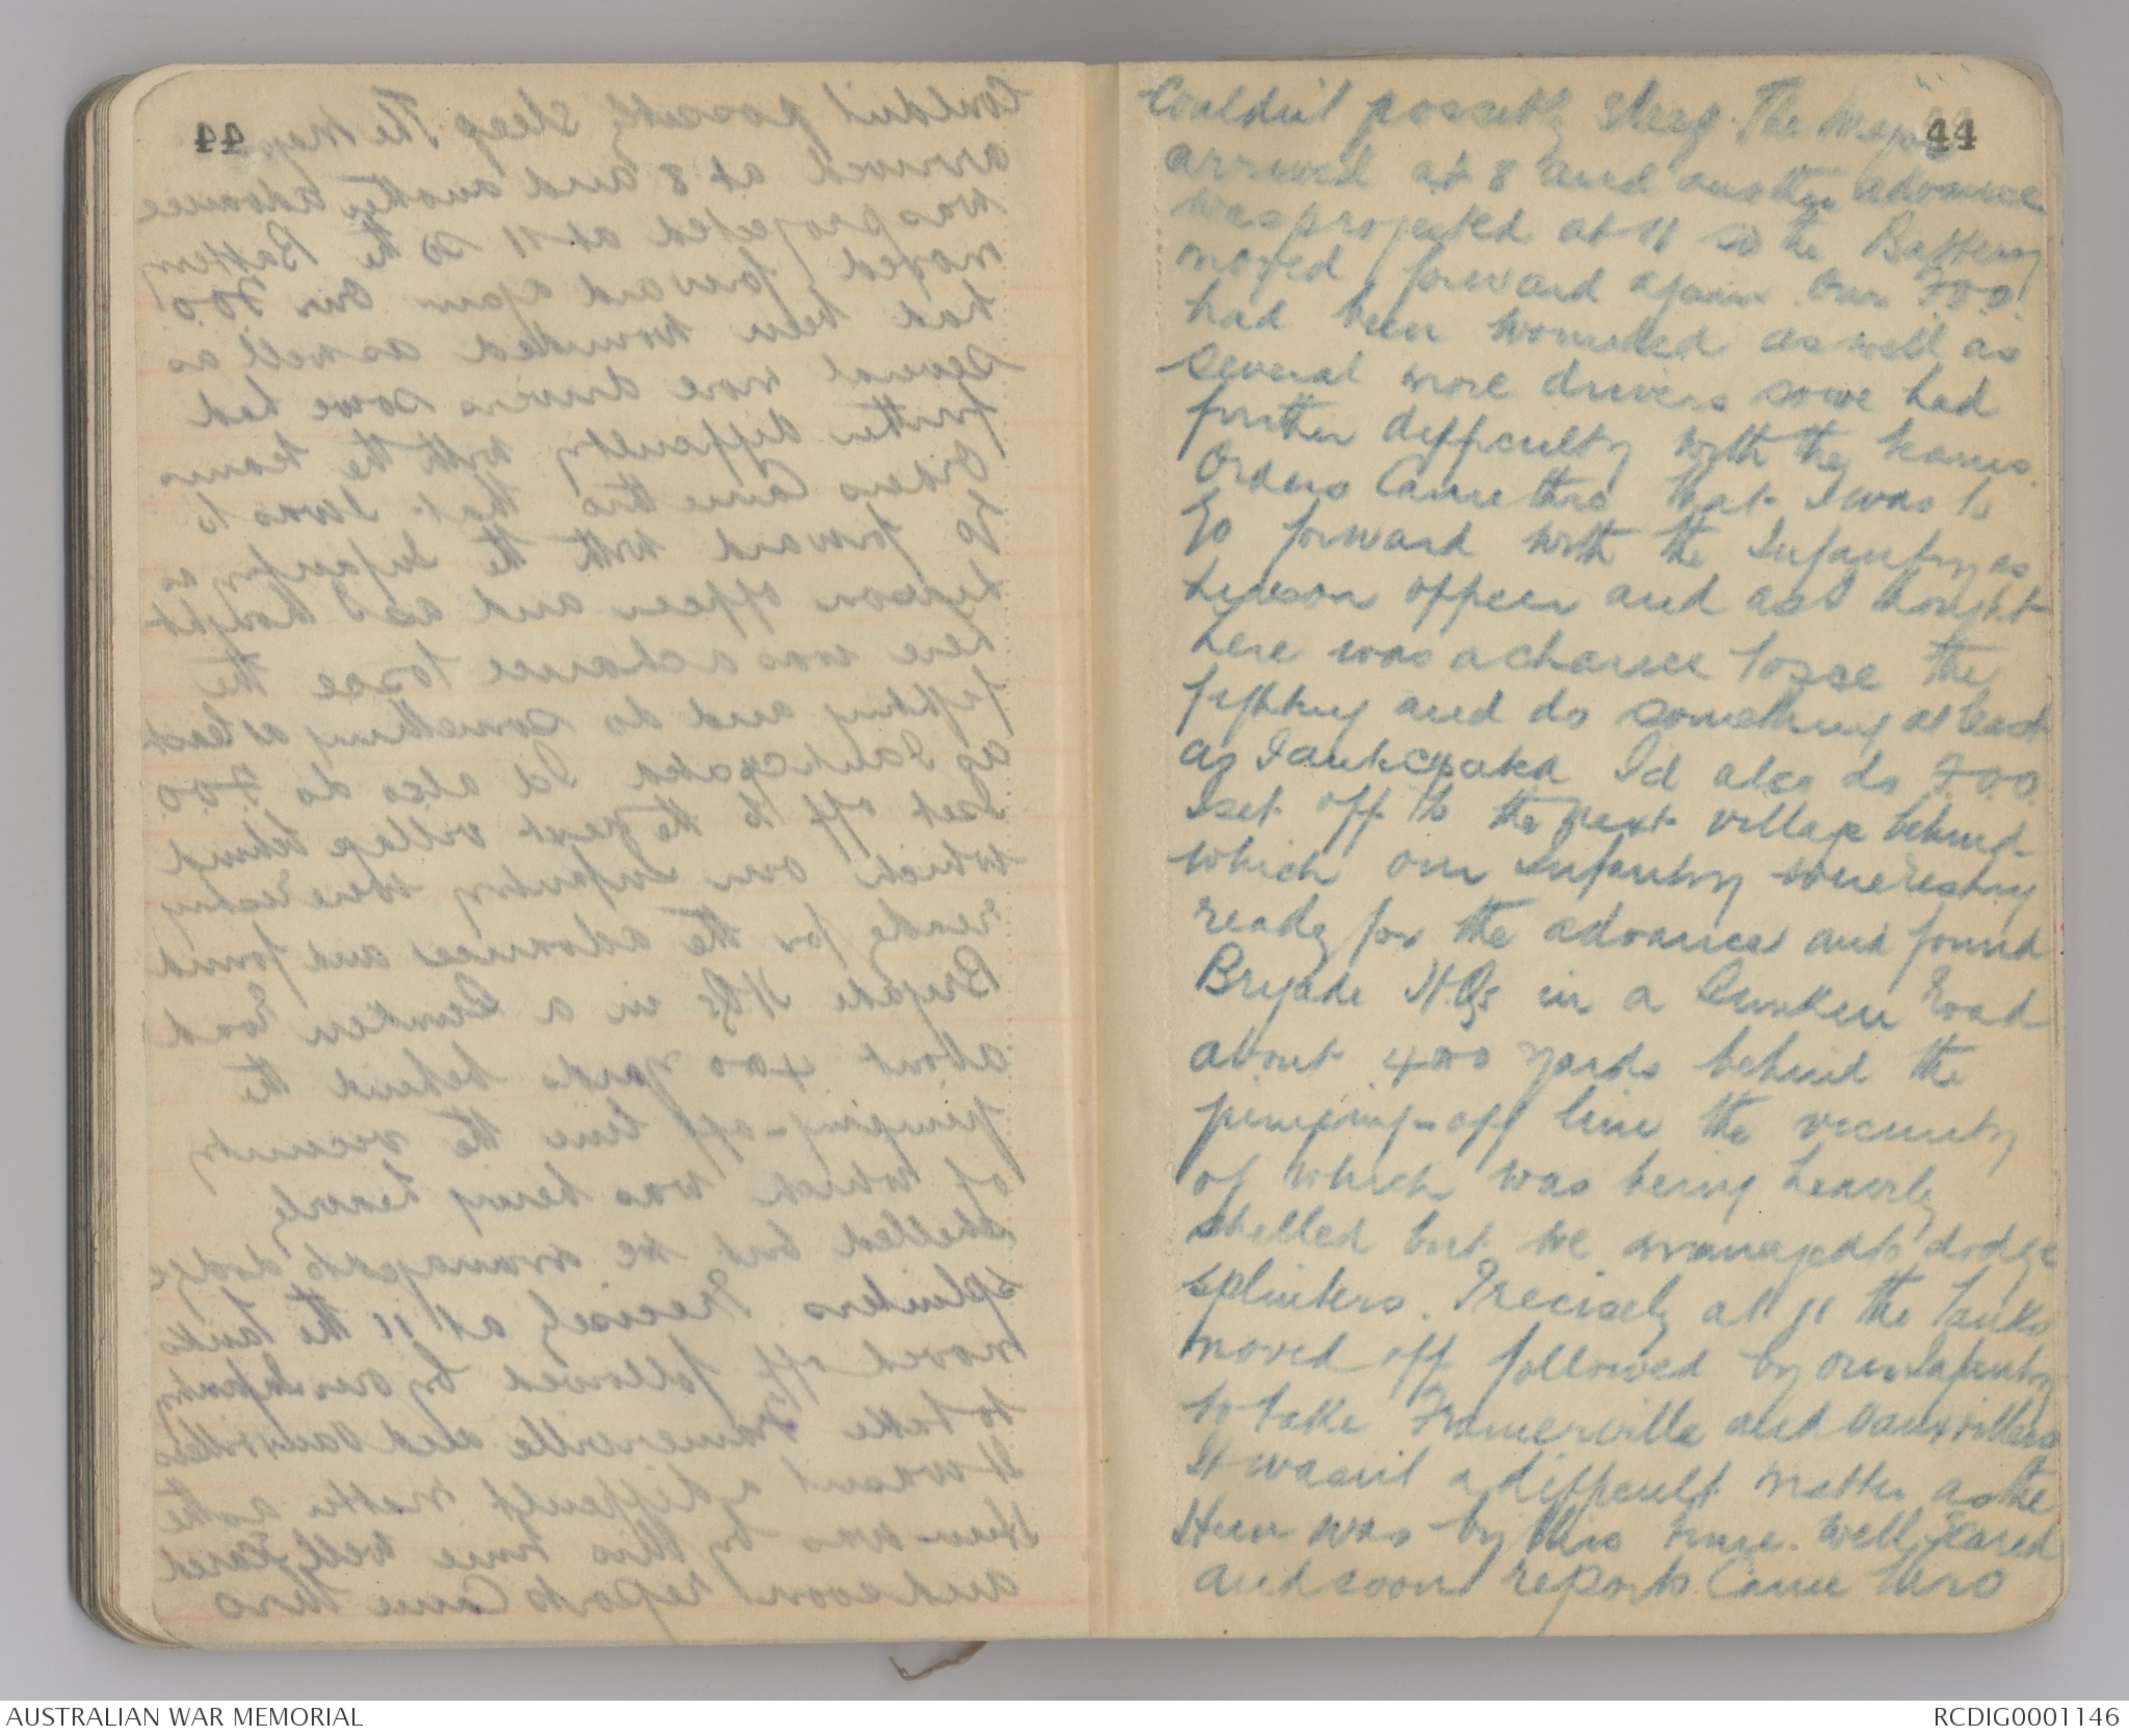 44
couldn't possibly sleep. The Major
arrived at 8 and another advance
was projected at 11 so the Battery
moved forward again. Our F.O.O.
had been wounded as well as
several more drivers so we had
further difficulty with the teams.
Orders came thro that I was to
go forward with the Infantry as
Liaison officer and as I thought
here was a chance to see the
fighting and do something at least
as I anticipated I'd also do F.O.O.
I set off to the next village behind
which our Infantry were resting
ready for the advance and found
Brigade H.Qs in a Sunken Road
about 400 yards behind the
jumping-off line the vicinity
of which was being heavily
shelled but we managed to dodge
splinters. Precisely at 11 the Tanks
moved off followed by our Infantry
to take Framerville and Vauvillers
It wasn't a difficult matter as the
Hun was by this time well scared
and soon reports came thro
AUSTRALIAN WAR MEMORIAL
RCDIG0001146